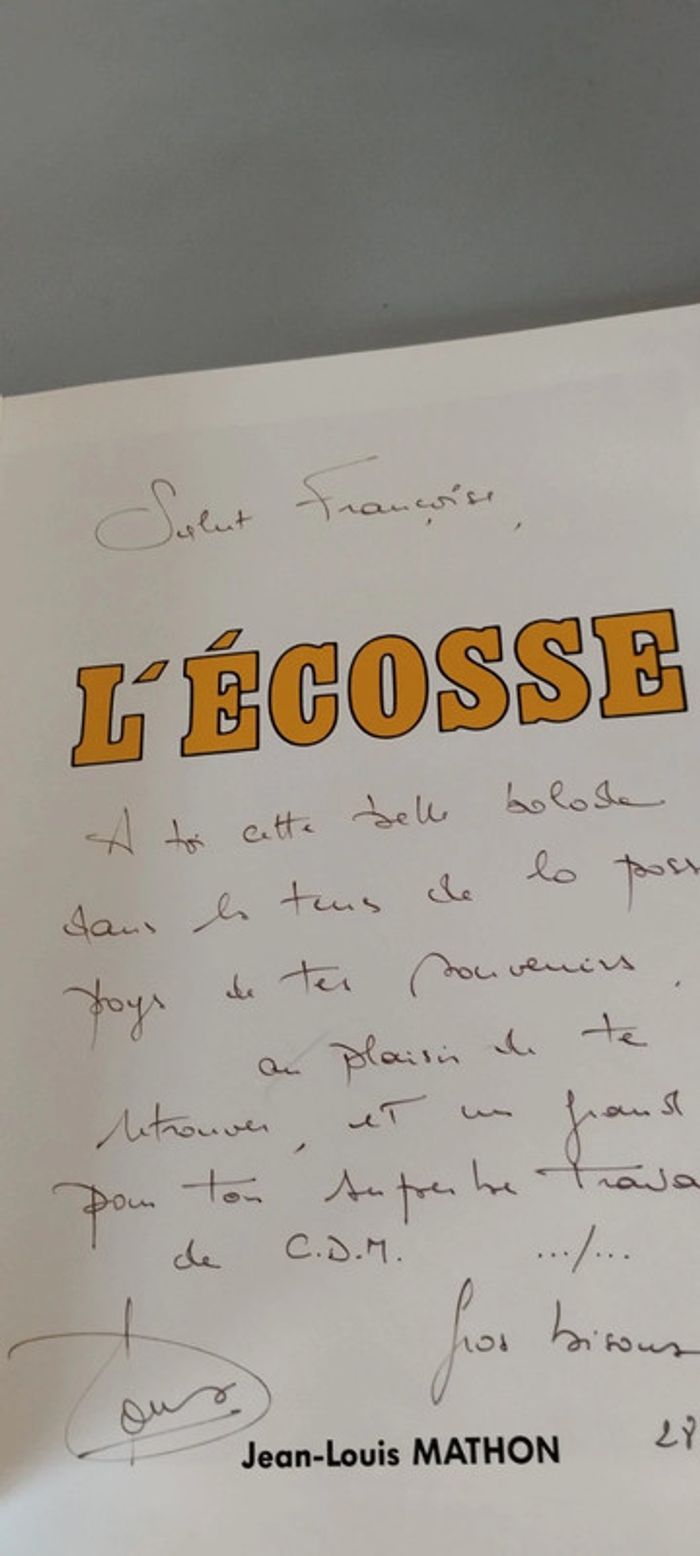 Salut Françoise,
L'ÉCOSSE
A toi cette belle balade
dans le temps de la
pays de tes souvenirs.
au plaisir de te
retrouver, et un grand
pour ton superbe
de C.D.M. .../...
Gros bisous
Jean-Louis MATHON
28